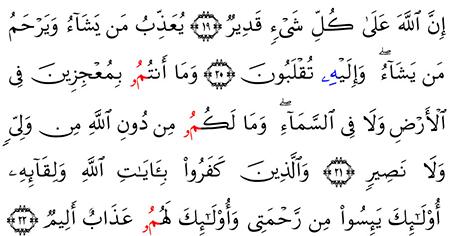 إِنَّ ٱللَّهَ عَلَىٰ كُلِّ شَىْءٍ قَدِيرٌ ﴿١٩﴾ يُعَذِّبُ مَن يَشَآءُ وَيَرْحَمُ
مَن يَشَآءُ ۖ وَإِلَيْهِۦ تُقْلَبُونَ ﴿٢٠﴾ وَمَآ أَنتُمُۥ بِمُعْجِزِينَ فِى
ٱلْأَرْضِ وَلَا فِى ٱلسَّمَآءِ ۖ وَمَا لَكُمُۥ مِن دُونِ ٱللَّهِ مِن وَلِىٍّ
وَلَا نَصِيرٍ ﴿٢١﴾ وَٱلَّذِينَ كَفَرُوا۟ بِـَٔايَـٰتِ ٱللَّهِ وَلِقَآئِهِۦٓ
أُو۟لَـٰٓئِكَ يَئِسُوا۟ مِن رَّحْمَتِى وَأُو۟لَـٰٓئِكَ لَهُمُۥ عَذَابٌ أَلِيمٌ ﴿٢٢﴾